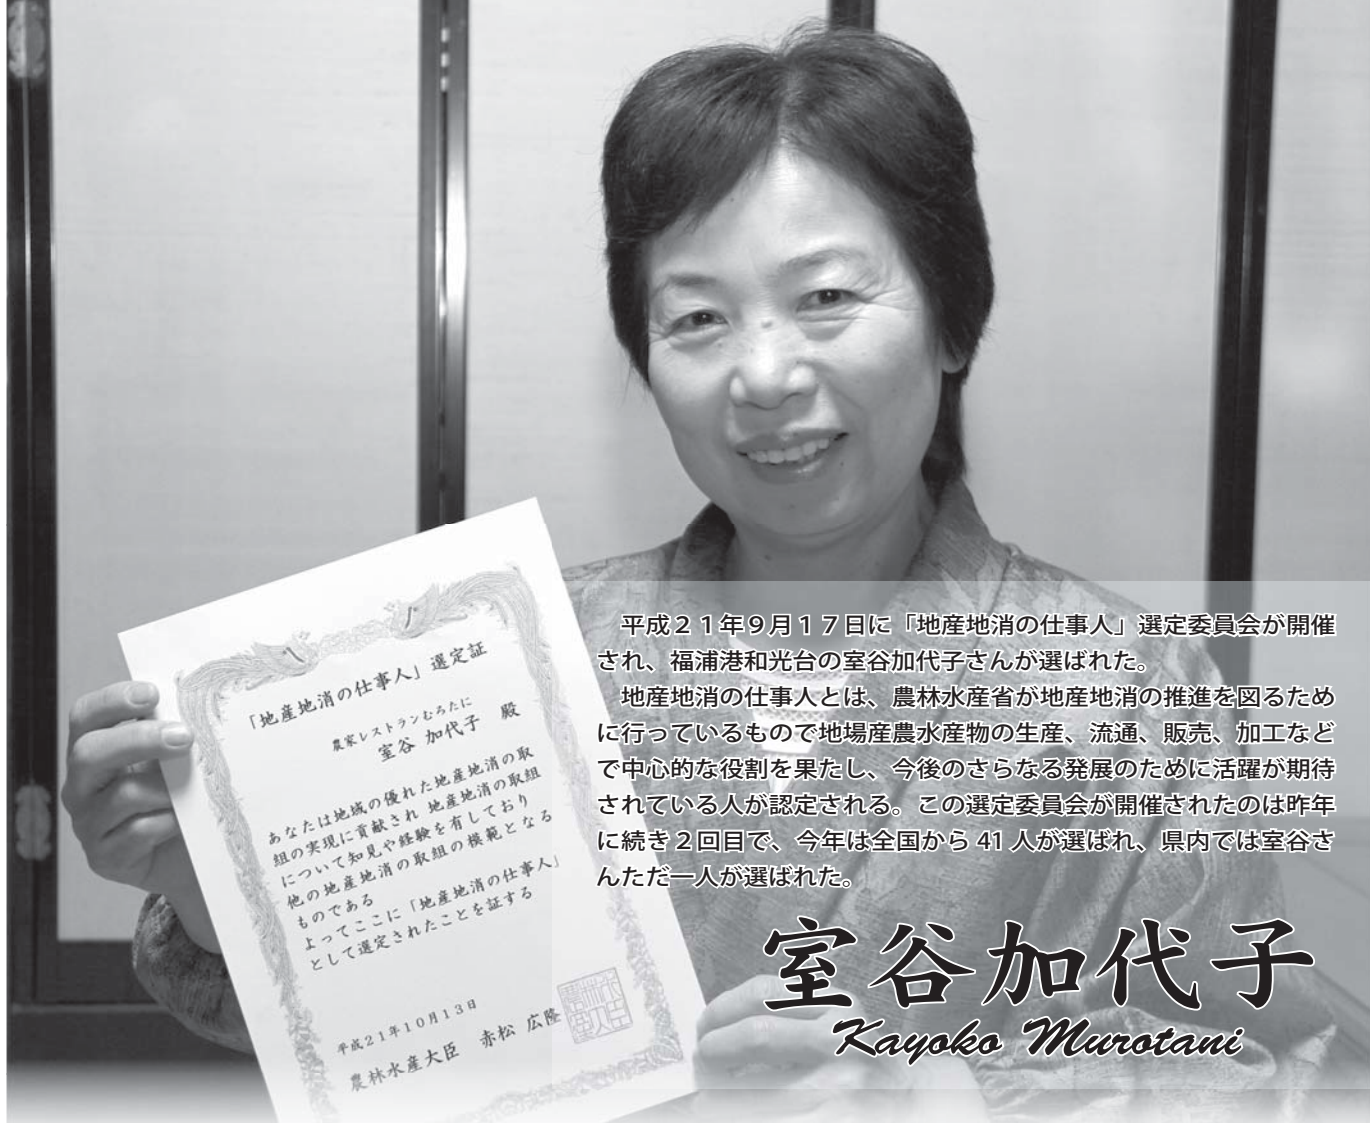 「地産地消の仕事人」選定証
農家レストランむろたに
室谷 加代子 殿
あなたは地域の優れた地産地消の取
組の実現に貢献され 地産地消の取組
について知見や経験を有しており
他の地産地消の取組の模範となる
ものである
よってここに「地産地消の仕事人」
として選定されたことを証する
平成21年10月13日
農林水産大臣 赤松 広隆
平成21年9月17日に「地産地消の仕事人」選定委員会が開催
され、福浦港和光台の室谷加代子さんが選ばれた。
地産地消の仕事人とは、農林水産省が地産地消の推進を図るため
に行っているもので地場産農水産物の生産、流通、販売、加工など
で中心的な役割を果たし、今後のさらなる発展のために活躍が期待
されている人が認定される。この選定委員会が開催されたのは昨年
に続き2回目で、今年は全国から 41 人が選ばれ、県内では室谷さ
んただ一人が選ばれた。
室谷加代子
Kayoko Murotani